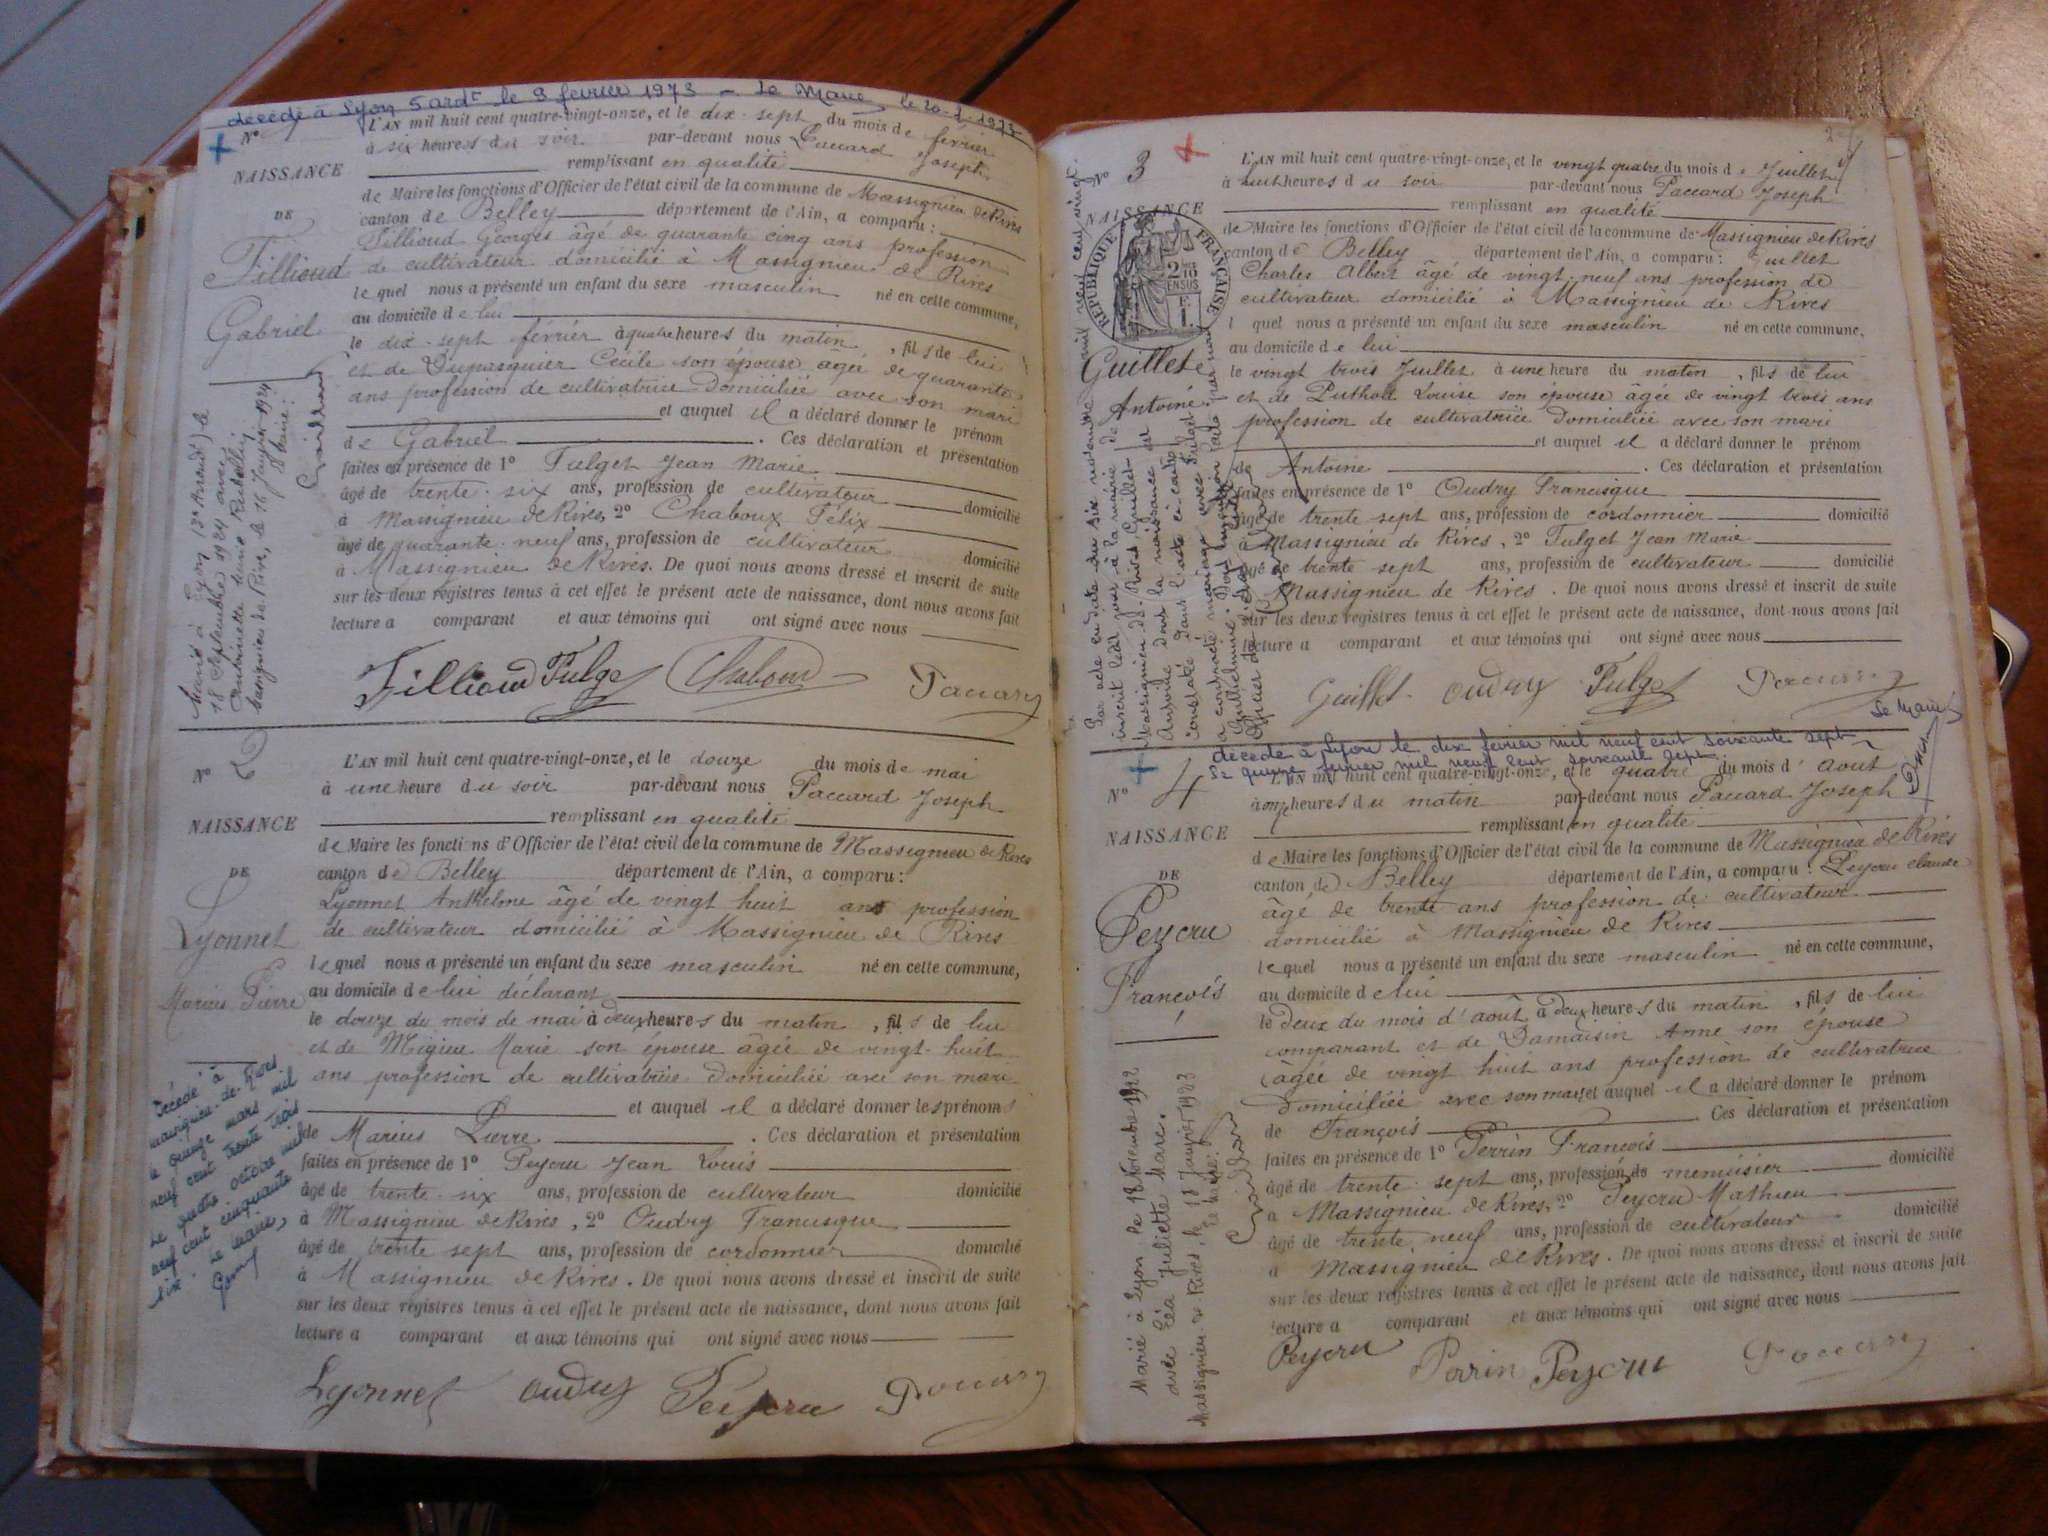 décédé à Lyon 5 ardt le 9 février 1973 - Le Maire, le 20-2-1973
N°
L'AN mil huit cent quatre-vingt-onze, et le dix-sept du mois de février
à six heures du soir par-devant nous Paccard Joseph
NAISSANCE remplissant en qualité
de Maire les fonctions d'Officier de l'état civil de la commune de Massignieu de Rives
DE
canton de Belley département de l'Ain, a comparu :
Fillioud Georges âgé de quarante cinq ans profession
Fillioud
de cultivateur domicilié à Massignieu de Rives
lequel nous a présenté un enfant du sexe masculin né en cette commune,
Gabriel
au domicile de lui
le dix-sept février à quatre heures du matin, fils de lui
et de Dupasquier Cécile son épouse âgée de quarante
ans profession de cultivatrice domiciliée avec son mari
et auquel il a déclaré donner le prénom
de Gabriel . Ces déclaration et présentation
faites en présence de 1° Fulget Jean Marie
âgé de trente-six ans, profession de cultivateur domicilié
à Massignieu de Rives, 2° Chaboux Félix
âgé de quarante-neuf ans, profession de cultivateur domicilié
à Massignieu de Rives. De quoi nous avons dressé et inscrit de suite
sur les deux registres tenus à cet effet le présent acte de naissance, dont nous avons fait
lecture a comparant et aux témoins qui ont signé avec nous
Marié à Lyon (3e Arrond) le
18 Septembre 1924 avec
Antoinette
Massignieu de Rives, le 16 Janvier 1924
Le Maire :
Fillioud Fulget Chaboux Paccard
N° 2
L'AN mil huit cent quatre-vingt-onze, et le douze du mois de mai
à une heure du soir par-devant nous Paccard Joseph
NAISSANCE remplissant en qualité
de Maire les fonctions d'Officier de l'état civil de la commune de Massignieu de Rives
DE
canton de Belley département de l'Ain, a comparu :
Lyonnet Anthelme âgé de vingt huit ans profession
Lyonnet
de cultivateur domicilié à Massignieu de Rives
lequel nous a présenté un enfant du sexe masculin né en cette commune,
Marius Pierre
au domicile de lui déclarant
le douze du mois de mai à deux heures du matin, fils de lui
et de Migieu Marie son épouse âgée de vingt-huit
ans profession de cultivatrice domiciliée avec son mari
et auquel il a déclaré donner les prénoms
de Marius Pierre . Ces déclaration et présentation
faites en présence de 1° Peycru Jean Louis
âgé de trente-six ans, profession de cultivateur domicilié
à Massignieu de Rives, 2° Oudry Francisque
âgé de trente sept ans, profession de cordonnier domicilié
à Massignieu de Rives. De quoi nous avons dressé et inscrit de suite
sur les deux registres tenus à cet effet le présent acte de naissance, dont nous avons fait
lecture a comparant et aux témoins qui ont signé avec nous
Décédé à
Massignieu-de-Rives
le quinze mars mil
neuf cent trente trois
Le quatre octobre mil
neuf cent cinquante
six. Le Maire,
Lyonnet Oudry Peycru Paccard
2
N° 3
L'AN mil huit cent quatre-vingt-onze, et le vingt quatre du mois de Juillet
à huit heures du soir par-devant nous Paccard Joseph
NAISSANCE remplissant en qualité
de Maire les fonctions d'Officier de l'état civil de la commune de Massignieu de Rives
RÉPUBLIQUE FRANÇAISE
2/10 EN SUS
canton de Belley département de l'Ain, a comparu : Guillet
Charles Albert âgé de vingt-neuf ans profession de
cultivateur domicilié à Massignieu de Rives
l quel nous a présenté un enfant du sexe masculin né en cette commune,
au domicile de lui
Guillet
le vingt trois Juillet à une heure du matin, fils de lui
Antoine
et de Puthod Louise son épouse âgée de vingt trois ans
profession de cultivatrice domiciliée avec son mari
et auquel il a déclaré donner le prénom
de Antoine . Ces déclaration et présentation
faites en présence de 1° Oudry Francisque
âgé de trente sept ans, profession de cordonnier domicilié
à Massignieu de Rives, 2° Fulget Jean Marie
âgé de trente sept ans, profession de cultivateur domicilié
à Massignieu de Rives. De quoi nous avons dressé et inscrit de suite
sur les deux registres tenus à cet effet le présent acte de naissance, dont nous avons fait
lecture a comparant et aux témoins qui ont signé avec nous
Par acte en date du six novembre mil neuf cent vingt
inscrit ledit jour à la mairie de
Massignieu de Rives, Guillet
Antoine dont la naissance est
constatée dans l'acte ci-contre
a contracté mariage avec Fulget
Guillet Oudry Fulget Paccard
Le Maire
décédé à Lyon le dix février mil neuf cent soixante sept
Le quinze février mil neuf cent soixante sept
N° 4
L'AN mil huit cent quatre-vingt-onze, et le quatre du mois d'août
à onze heures du matin par-devant nous Paccard Joseph
NAISSANCE remplissant en qualité
de Maire les fonctions d'Officier de l'état civil de la commune de Massignieu de Rives
DE
canton de Belley département de l'Ain, a comparu : Peycru Claude
âgé de trente ans profession de cultivateur
Peycru
domicilié à Massignieu de Rives
lequel nous a présenté un enfant du sexe masculin né en cette commune,
François
au domicile de lui
le deux du mois d'août à deux heures du matin, fils de lui
comparant et de Damaisin Anne son épouse
âgée de vingt huit ans profession de cultivatrice
domiciliée avec son mari et auquel il a déclaré donner le prénom
de François . Ces déclaration et présentation
faites en présence de 1° Perrin François
âgé de trente-sept ans, profession de menuisier domicilié
à Massignieu de Rives, 2° Peycru Mathieu
âgé de trente neuf ans, profession de cultivateur domicilié
à Massignieu de Rives. De quoi nous avons dressé et inscrit de suite
sur les deux registres tenus à cet effet le présent acte de naissance, dont nous avons fait
lecture a comparant et aux témoins qui ont signé avec nous
Marié à Lyon le 18 Novembre 1922
avec Léa Juliette Mare.
Massignieu de Rives, le 18 Janvier 1923
Le Maire :
Peycru Perrin Peycru Paccard